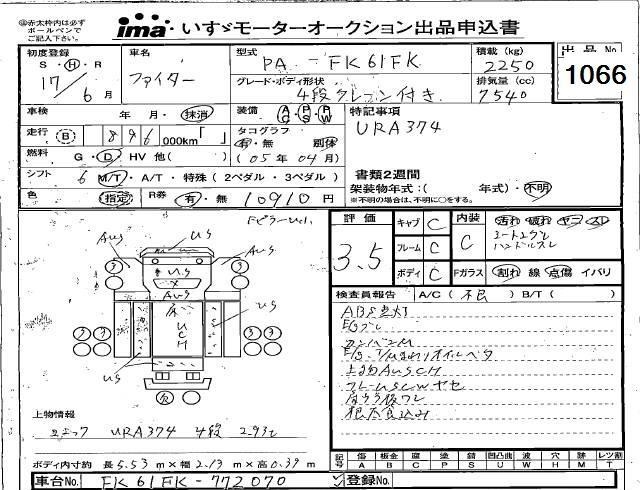 @赤太枠内は必ず
ボールペンで
ご記入下さい。
ima いすゞモーターオークション出品申込書
初度登録 車名 型式 PA - FK61FK 積載(kg) 2250 出品No
S・H・R 17/6月 ファイター グレード・ボディ形状 4段クレーン付き 排気量(cc) 7540 1066
車検 年 月・抹消 装備 AC・PS・PW 特記事項
走行 B 896 000km「 」 タコグラフ 有・無 別体 URA374
燃料 G・D・HV 他( ) (05年04月) 書類2週間
シフト 6 M/T・A/T・特殊(2ペダル・3ペダル) 架装物年式:( 年式)・不明
色 指定 R券 有・無 10910円 ※不明の場合は、不明に○をする。
評価 3.5 キャブ C 内装 C 汚れ 破れ ヤケ スレ
フレーム C
ハンドルスレ
ボディ C Fガラス 割れ 線 点傷 イバリ
検査員報告 A/C(不良)B/T( )
ABS点灯
オイルベタ
上物AUSCH
根太食込み
AUS
US
AUS
US
AUS
UCH
US
US
上物情報
URA374 4段 2.93t
ボディ内寸約 長5.53m×幅2.13m×高0.39m
記号 傷 板金 腐 塗 錆 凹凸曲 波 穴 跡 レツ割
A B C P S U W H M T
車台No FK61FK-772070 登録No.